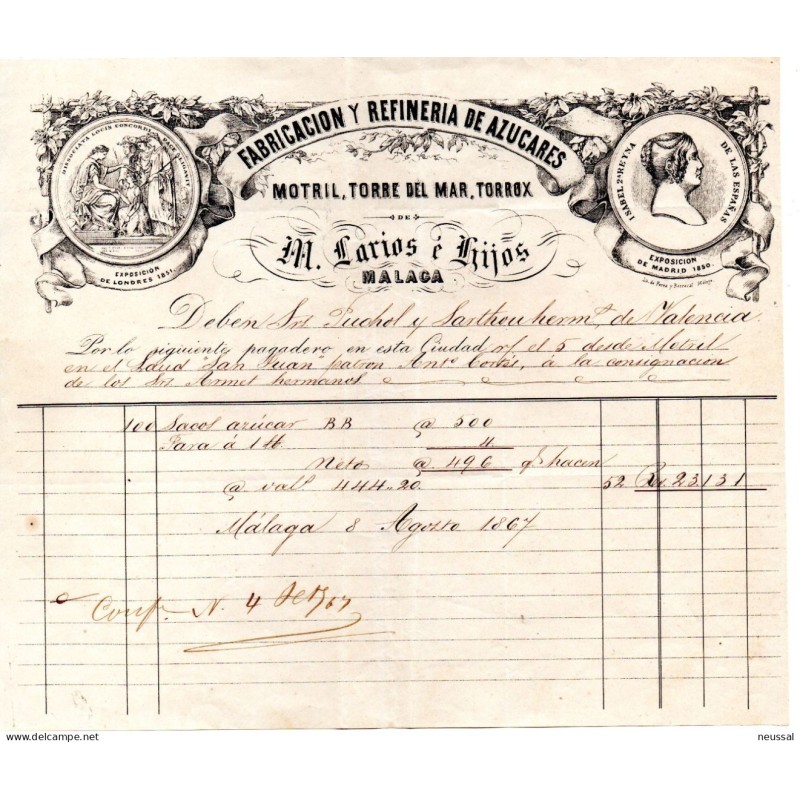 FABRICACION Y REFINERIA DE AZUCARES
MOTRIL, TORRE DEL MAR, TORROX
DE
M. Larios é Hijos
MALAGA
DISSOCIATA LOCIS CONCORDI PACE LIGAVIT
EXPOSICION
DE LONDRES 1851.
ISABEL 2ª REYNA DE LAS ESPAÑAS
EXPOSICION
DE MADRID 1850.
Deben Srs. Puchol y Sarthou herms. de Valencia
Por lo siguiente pagadero en esta Ciudad el 5 desde Motril
en el Laud San Juan patron Anto. Cortés, á la consignacion
de los Srs. Armet hermanos
100 Sacos azúcar BB @ 500
Tara á 1 lb. 4
Neto @ 496 q. hacen
@ val. 444..20. 52 Rv. 23,131
Málaga 8 Agosto 1867
Conf. N. 4
delcampe.net
neussal